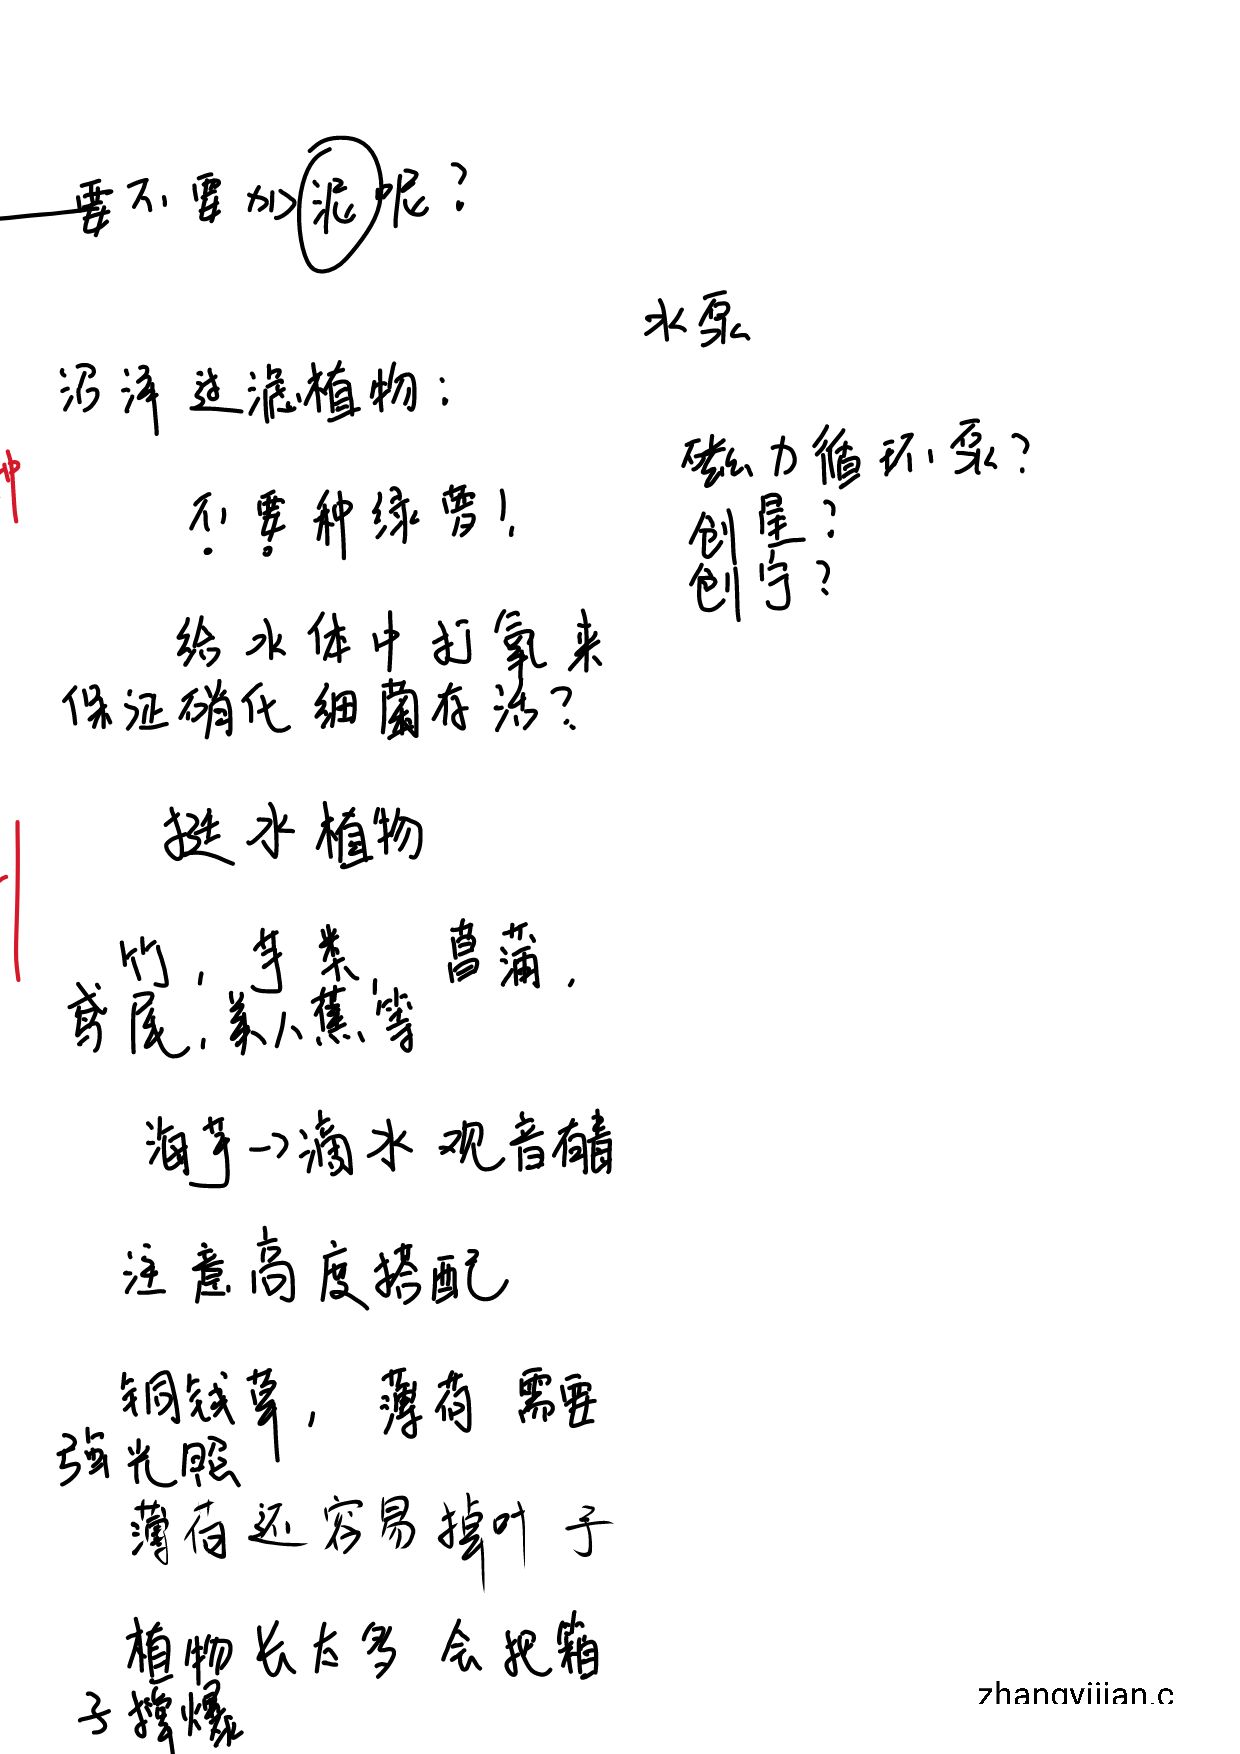 要不要加泥呢？
沼泽过滤植物：
不要种绿萝！
给水体中打氧来
保证硝化细菌存活？
挺水植物
竹，芋类，菖蒲，
鸢尾，美人蕉等
海芋→滴水观音有毒
注意高度搭配
铜钱草，薄荷需要
强光照
薄荷还容易掉叶子
植物长太多会把箱
子撑爆
水泵
磁力循环泵？
创星？
创宁？